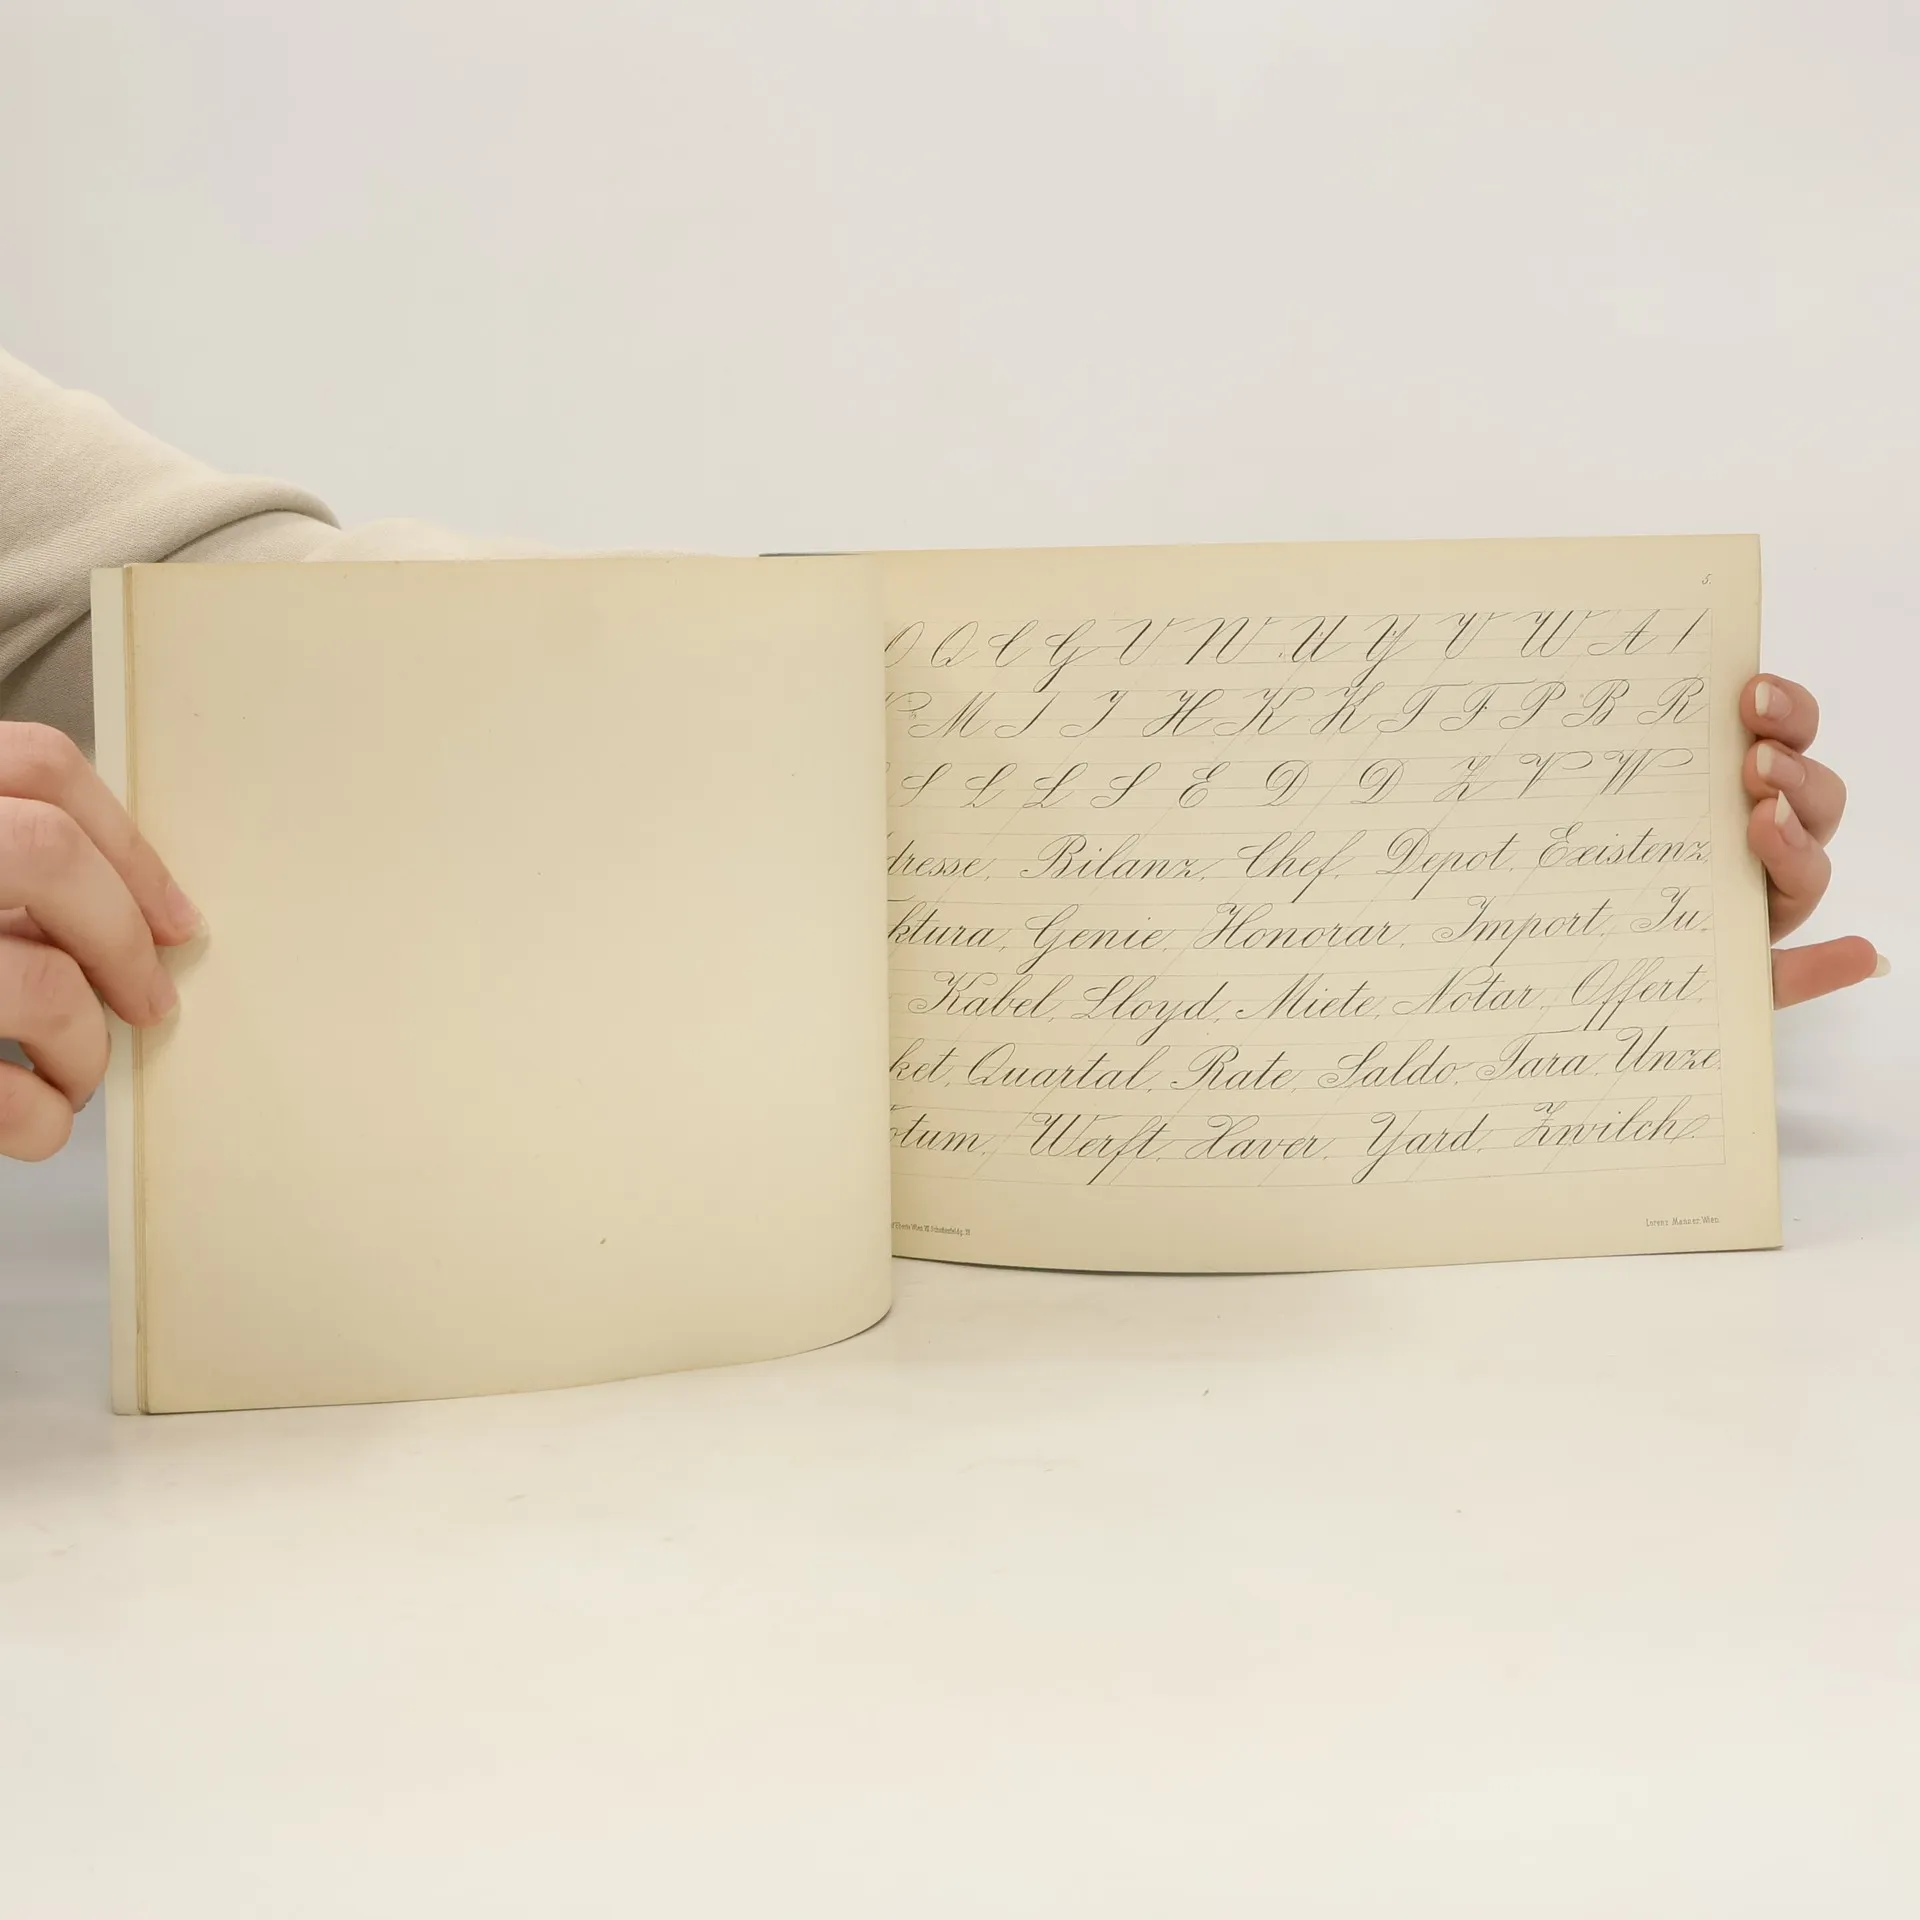 5.
O Q C G V N U Y V W A I
M I J H K K T F P B R
S L L S E D D Z V W
dresse, Bilanz, Chef, Depot, Existenz,
ktura, Genie, Honorar, Import, Ju-
Kabel, Lloyd, Miete, Notar, Offert,
ket, Quartal, Rate, Saldo, Tara, Unze,
otum, Werft, Xaver, Yard, Zwilch.
Wien, VII. Schottenfeldg. Lorenz Manner, Wien.